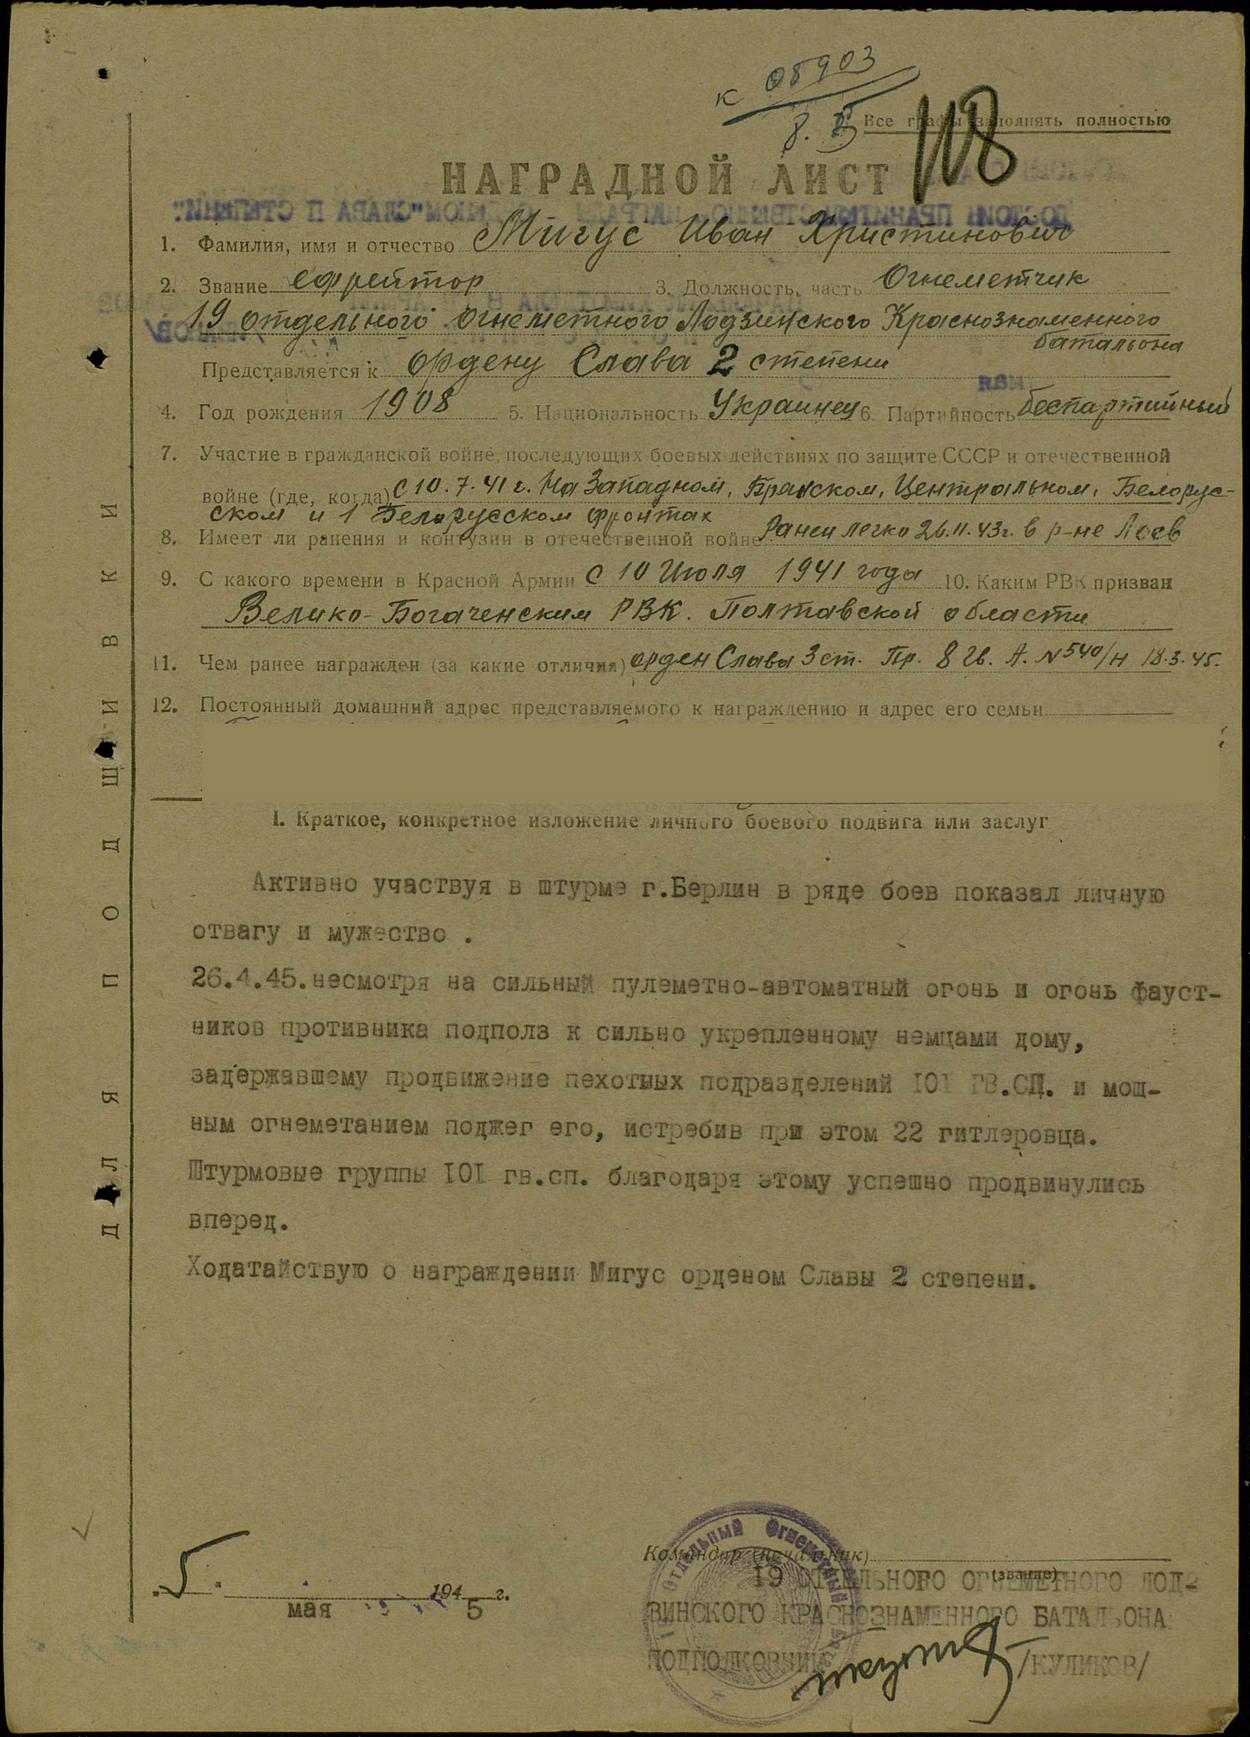 к 05903
8. 5
Все графы заполнять полностью
108
НАГРАДНОЙ ЛИСТ
1. Фамилия, имя и отчество Мигус Иван Христинович
2. Звание ефрейтор 3. Должность, часть Огнеметчик
19 отдельного огнеметного Лодзинского Краснознаменного
батальона
Представляется к ордену Слава 2 степени
4. Год рождения 1908 5. Национальность Украинец 6. Партийность беспартийный
7. Участие в гражданской войне, последующих боевых действиях по защите СССР и отечественной
войне (где, когда) с 10.7.41 г. На Западном, Брянском, Центральном, Белорус-
ском и 1 Белорусском фронтах
8. Имеет ли ранения и контузии в отечественной войне Ранен легко 26.11.43г. в р-не Лоев
9. С какого времени в Красной Армии с 10 Июля 1941 года 10. Каким РВК призван
Велико-Богаченским РВК. Полтавской области
11. Чем ранее награжден (за какие отличия) орден Слава 3 ст. Пр. 8 Гв. А. №540/н 18.3.45.
12. Постоянный домашний адрес представляемого к награждению и адрес его семьи
I. Краткое, конкретное изложение личного боевого подвига или заслуг
Активно участвуя в штурме г.Берлин в ряде боев показал личную
отвагу и мужество .
26.4.45.несмотря на сильный пулеметно-автоматный огонь и огонь фауст-
ников противника подполз к сильно укрепленному немцами дому,
задержавшему продвижение пехотных подразделений 101 ГВ.СП. и мощ-
ным огнеметанием поджег его, истребив при этом 22 гитлеровца.
Штурмовые группы 101 гв.сп. благодаря этому успешно продвинулись
вперед.
Ходатайствую о награждении Мигус орденом Славы 2 степени.
ДЛЯ ПОДШИВКИ
Командир (начальник)
(звание)
19 ОТДЕЛЬНОГО ОГНЕМЕТНОГО ЛОД-
ЗИНСКОГО КРАСНОЗНАМЕННОГО БАТАЛЬОНА
ПОДПОЛКОВНИК /КУЛИКОВ/
"5" мая 1945 г.
Отдельный Огнеметный